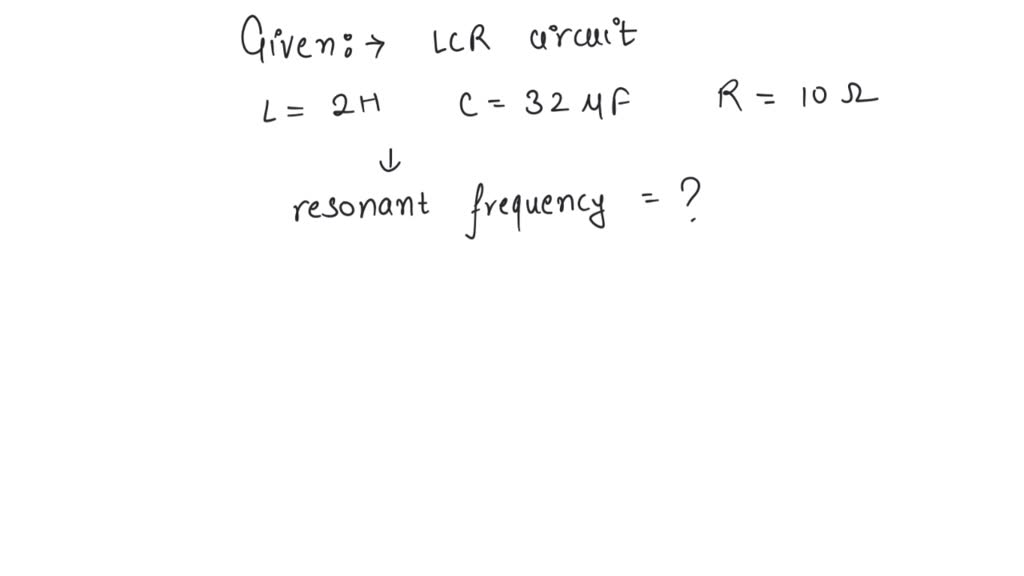 Given:→ LCR circuit
L = 2H C = 32 μF R = 10 Ω
↓
resonant frequency = ?